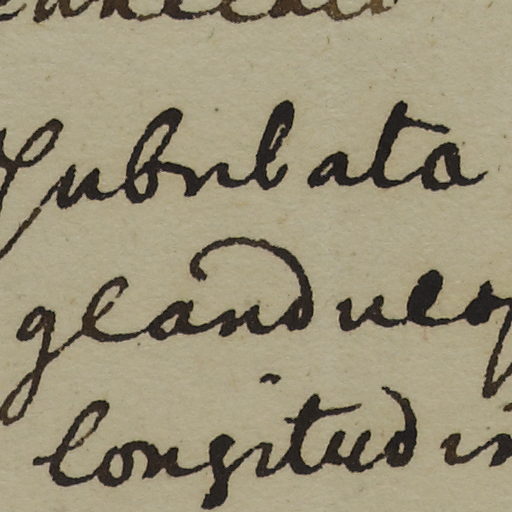 Subulata
glandulos
longitudin